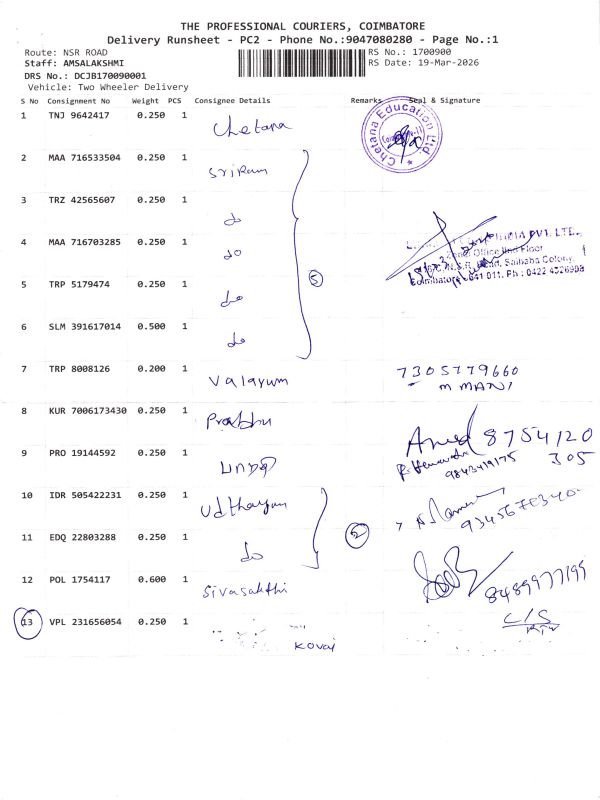 THE PROFESSIONAL COURIERS, COIMBATORE
Delivery Runsheet - PC2 - Phone No.:9047080280 - Page No.:1
Route: NSR ROAD
RS No.: 1700900
Staff: AMSALAKSHMI
RS Date: 19-Mar-2026
DRS No.: DCJB170090001
Vehicle: Two Wheeler Delivery
S No Consignment No Weight PCS Consignee Details Remarks Seal & Signature
1 TNJ 9642417 0.250 1 Chetana
Chetana Education Ltd
2 MAA 716533504 0.250 1 Sriram
3 TRZ 42565607 0.250 1 do
4 MAA 716703285 0.250 1 do
PVT. LTD.,
Floor
Road, Saibaba Colony,
Coimbatore - 641 011. Ph : 0422 4526998
5 TRP 5179474 0.250 1 do
5
6 SLM 391617014 0.500 1 do
7 TRP 8008126 0.200 1 Valayum 7305779660
M MANI
8 KUR 7006173430 0.250 1 Prabhu
8754120
305
9 PRO 19144592 0.250 1
9843419175
10 IDR 505422231 0.250 1 Udthayam
11 EDQ 22803288 0.250 1 do
2
12 POL 1754117 0.600 1 Sivasakthi
8489977199
13 VPL 231656054 0.250 1 Kovai
C/S